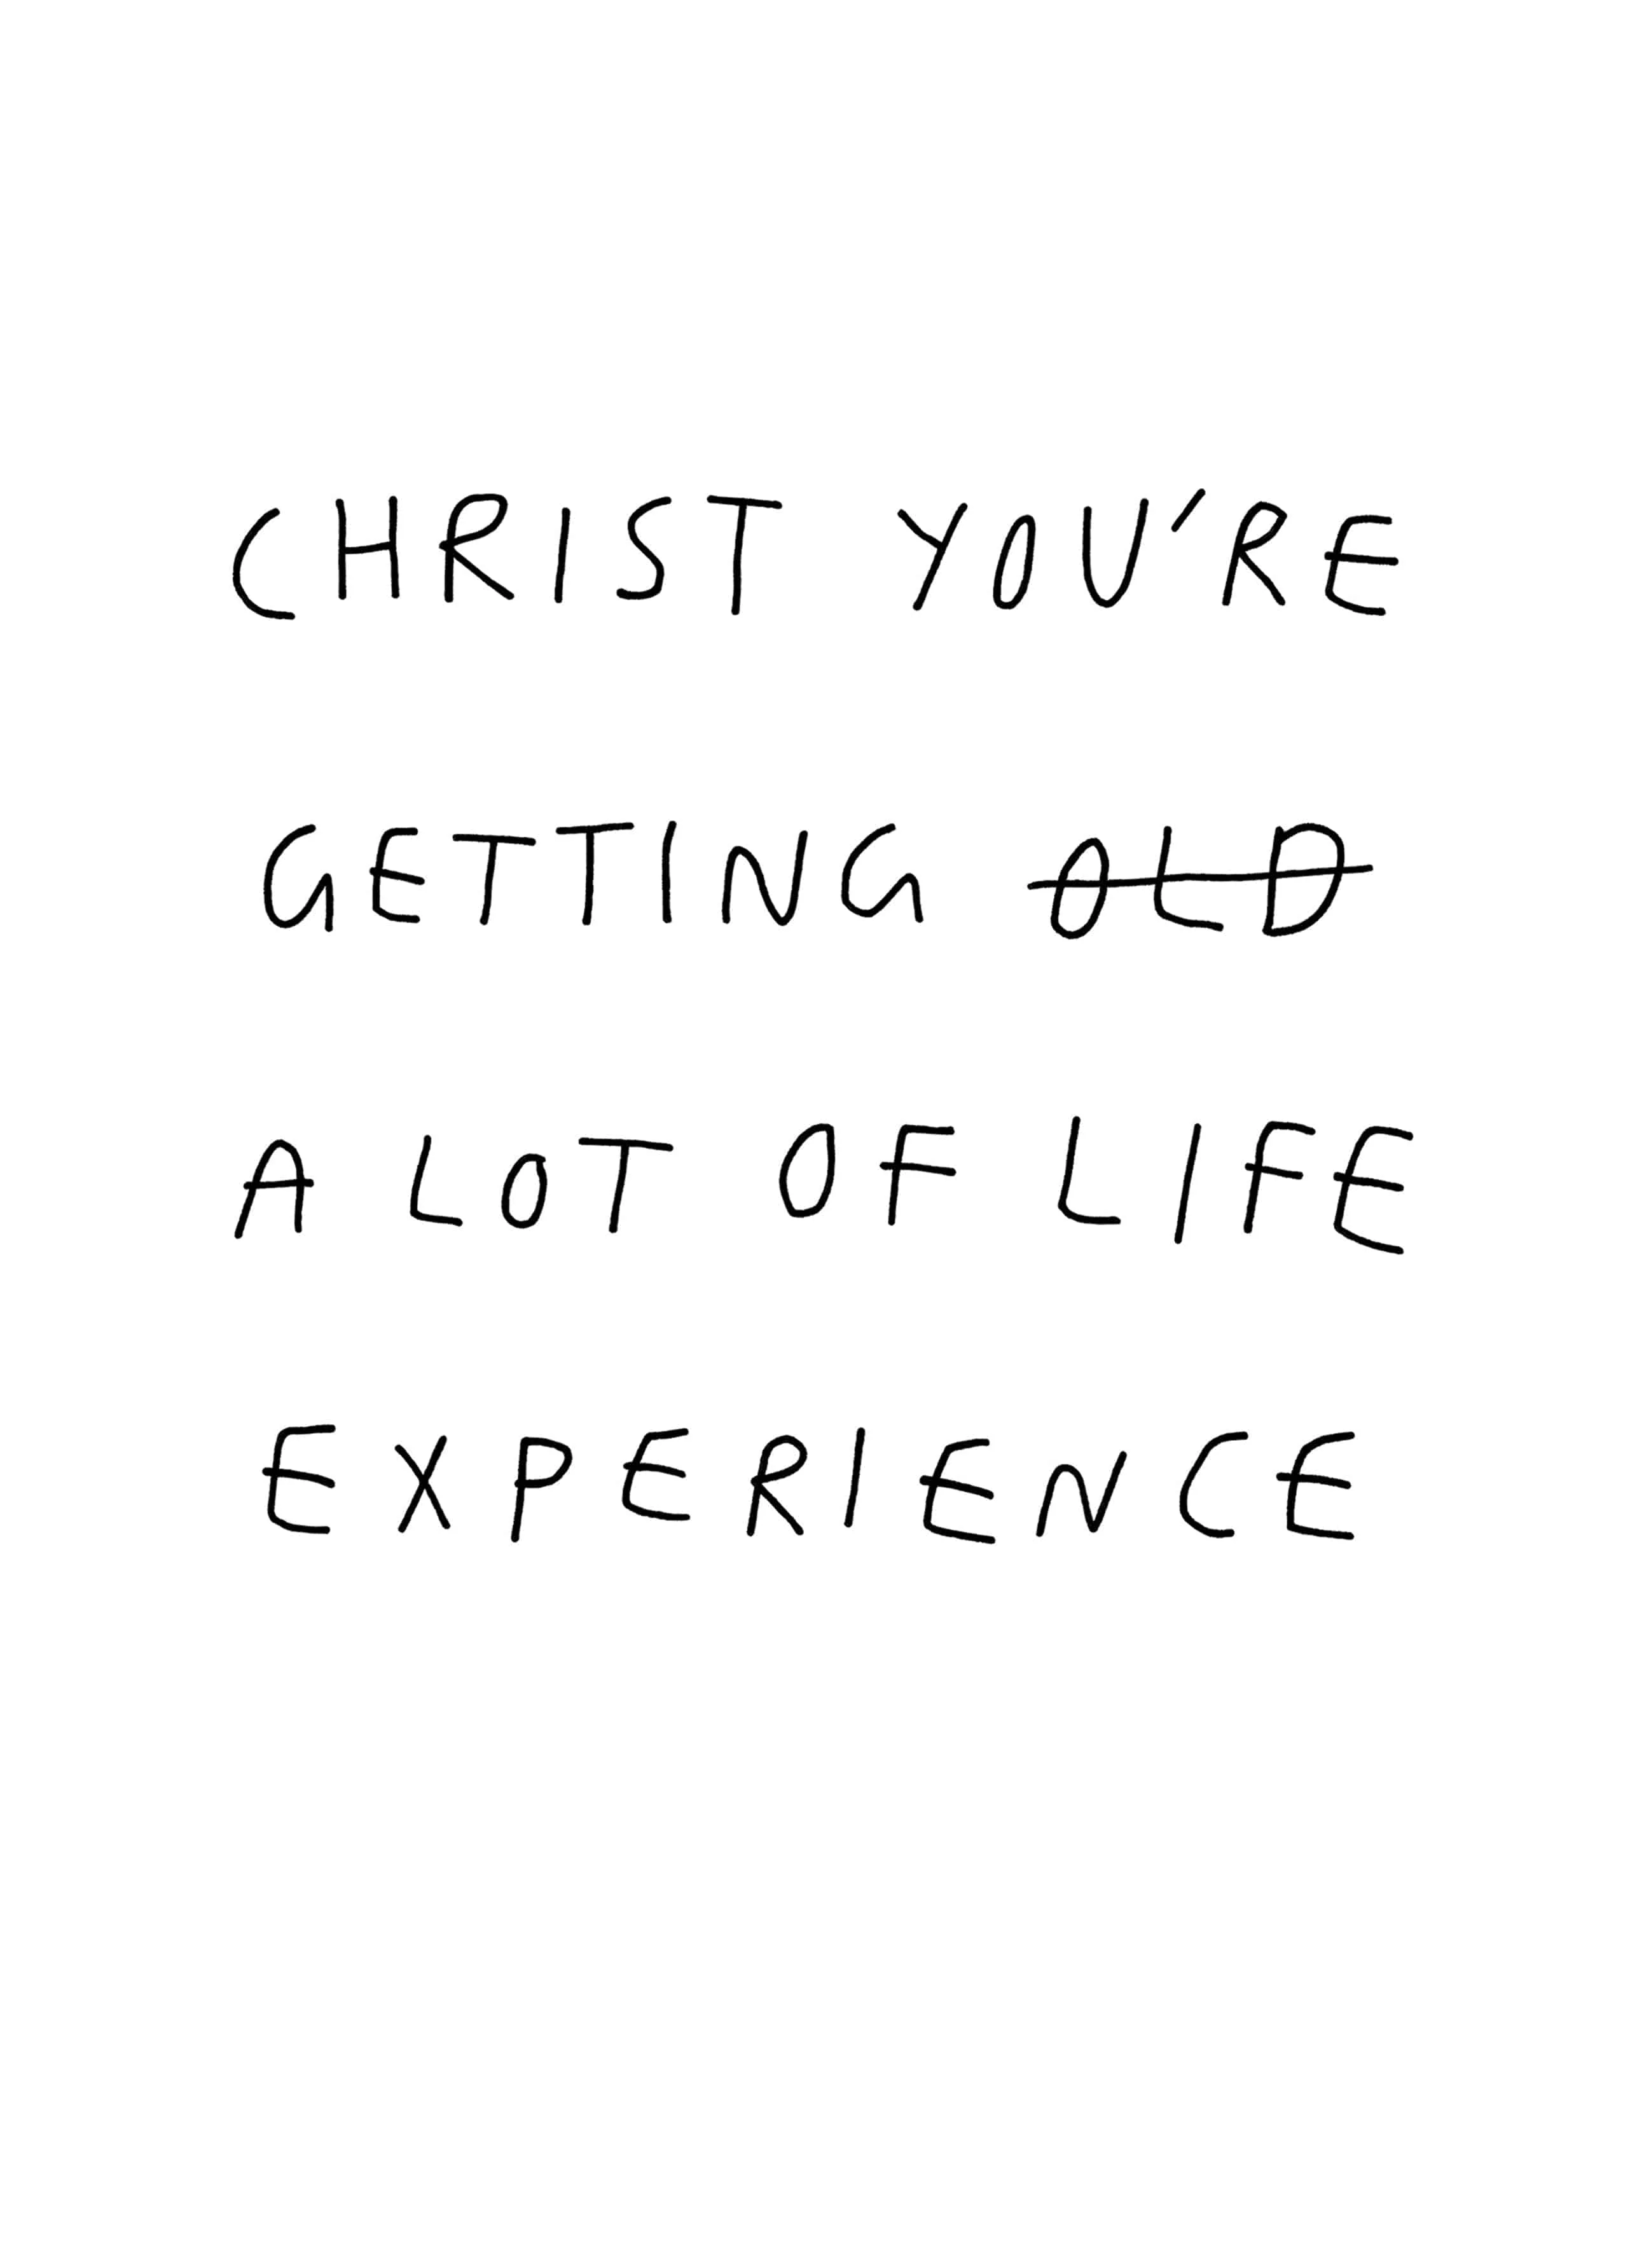 CHRIST YOU'RE
GETTING OLD
A LOT OF LIFE
EXPERIENCE